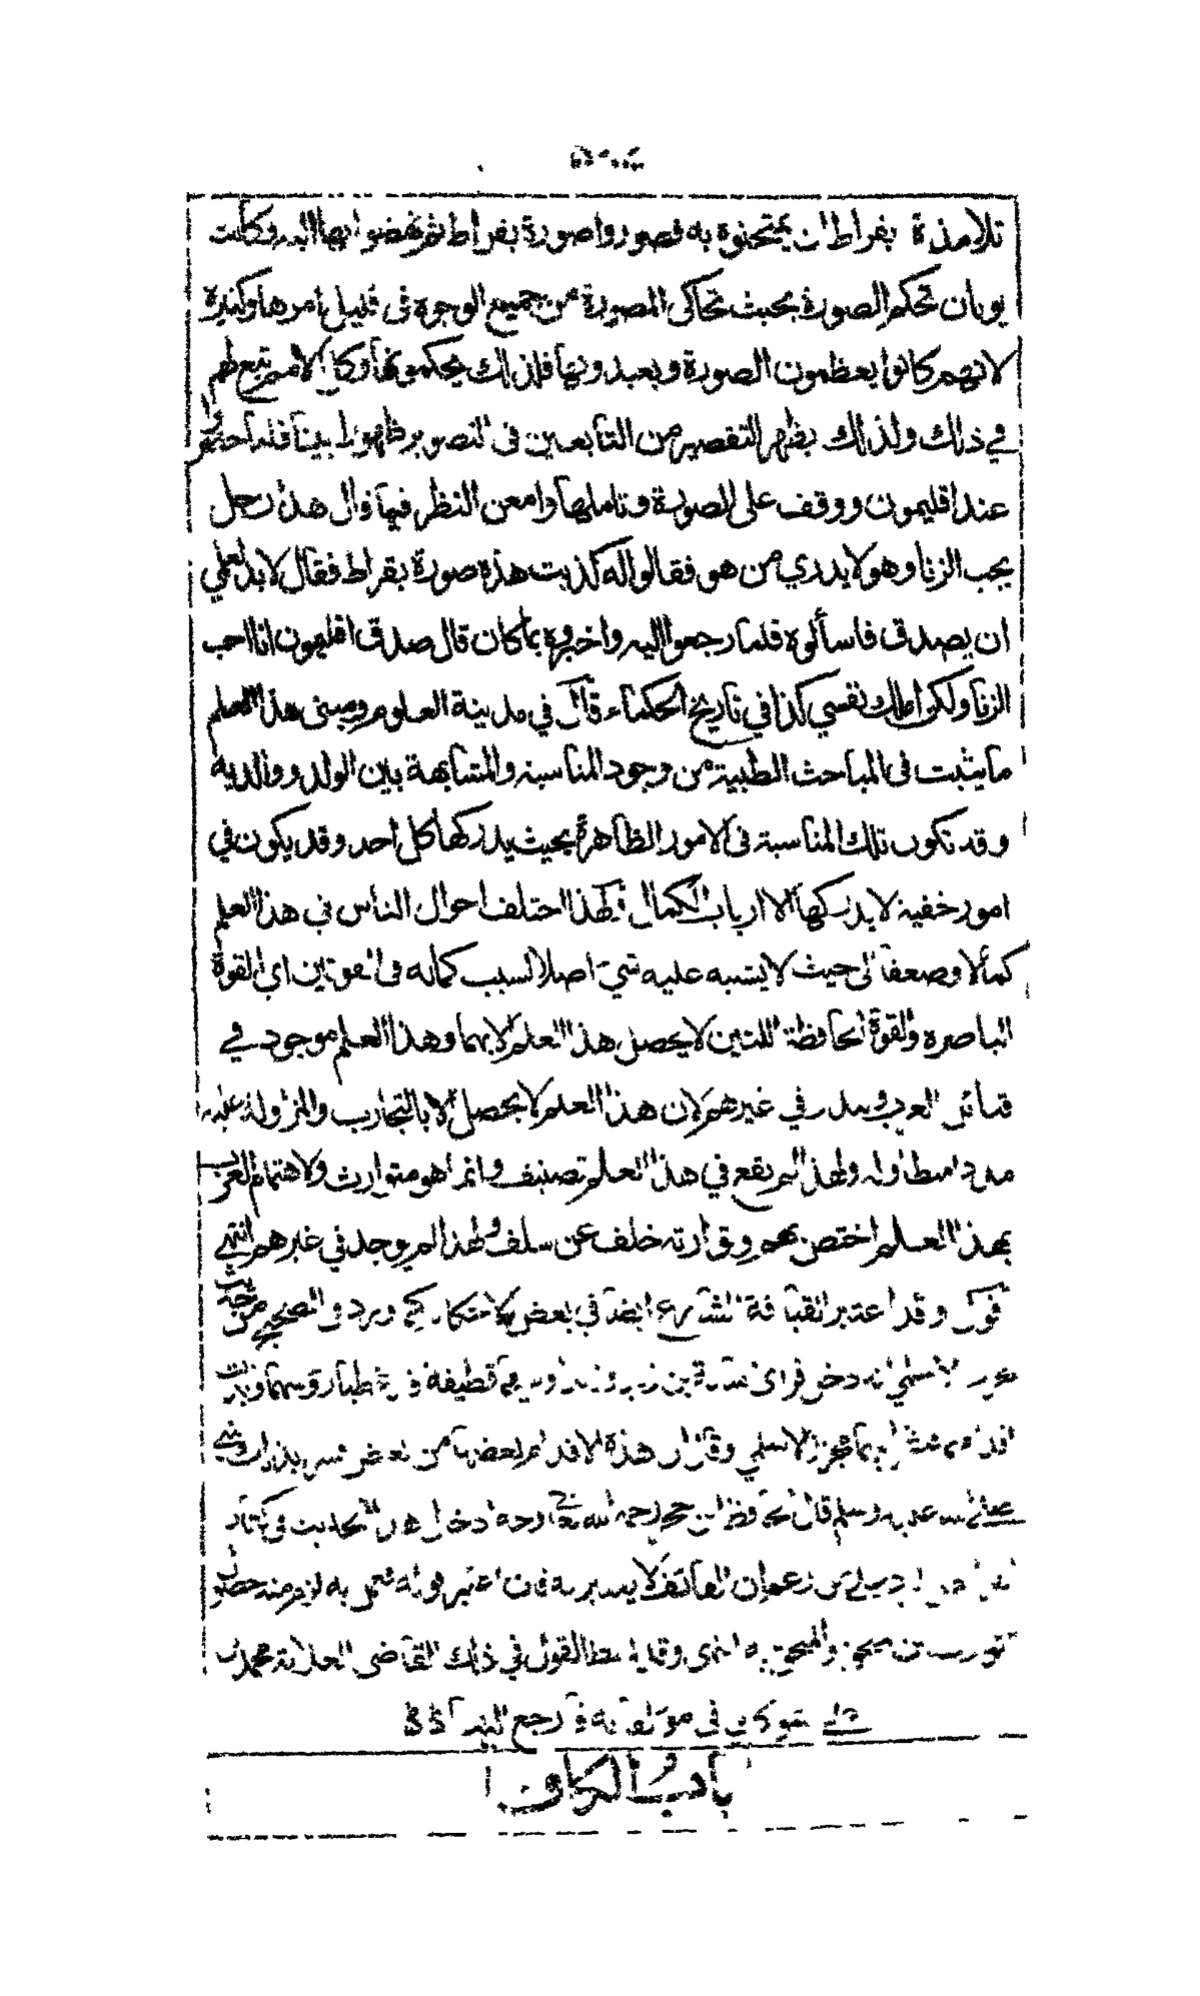 تلامذة بقراط ان يمتحنوه به فصوروا صورة بقراط ثم نهضوا بها اليه وكانت
يونان تحكم الصورة بحيث تحاكي الصورة من جميع الوجوه في قليل امرها وكثيره
لانهم كانوا يعظمون الصورة ويعبدونها فلذلك يحكمونها وكل الامم تبع لهم
في ذلك ولذلك يظهر التقصير من التابعين في التصوير ظهورا بينا فلما حضروا
عند اقليمون ووقف على الصورة وتاملها وامعن النظر فيها قال هذا رجل
يحب الزنا وهو لا يدري من هو فقالوا له كذبت هذه صورة بقراط فقال لا بد لعلمي
ان يصدق فاسألوه فلما رجعوا اليه واخبروه بما كان قال صدق اقليمون انا احب
الزنا ولكن املك نفسي كذا في تاريخ الحكماء قال في مدينة العلوم ومبنى هذا العلم
ما يثبت في المباحث الطبية من وجود المناسبة والمشابهة بين الولد ووالديه
وقد تكون تلك المناسبة في الامور الظاهرة بحيث يدركها كل احد وقد يكون في
امور خفية لا يدركها الا ارباب الكمال ولهذا اختلف احوال الناس في هذا العلم
كمالا وضعفا الى حيث لا يشتبه عليه شيء اصلا لسبب كماله في القوتين اي القوة
الباصرة والقوة الحافظة اللتين لا يحصل هذا العلم الا بهما وهذا العلم موجود في
قبائل العرب ويندر في غيرهم لان هذا العلم لا يحصل الا بالتجارب والمزاولة عليه
مددا متطاولة ولهذا لم يقع في هذا العلم تصنيف وانما هو متوارث ولاهتمام العرب
بهذا العلم اختص بهم وتوارثه خلف عن سلف ولهذا لم يوجد في غيرهم انتهى
قول وقد اعتبر القيافة الشارع ايضا في بعض الاحكام كما ورد في الصحيح من حديث
الاسلمي انه دخل فراى اسامة بن زيد وزيدا وعليهما قطيفة قد غطيا رؤسهما وبدت
الاسلمي وقال ان هذه الاقدام بعضها من بعض فسر بذلك النبي
صلى الله عليه وسلم قال الحافظ ابن حجر رحمه الله تعالى وجه ادخال هذا الحديث في كتاب
زعم ان القائف لا يعتبر به فان اعتبر قوله فعمل به لزم منه حصول
التوارث بين الملحق والملحق به انتهى وقد بسط القول في ذلك القاضي العلامة محمد بن
علي الشوكاني في مؤلفاته فارجع اليها
باب الكاف